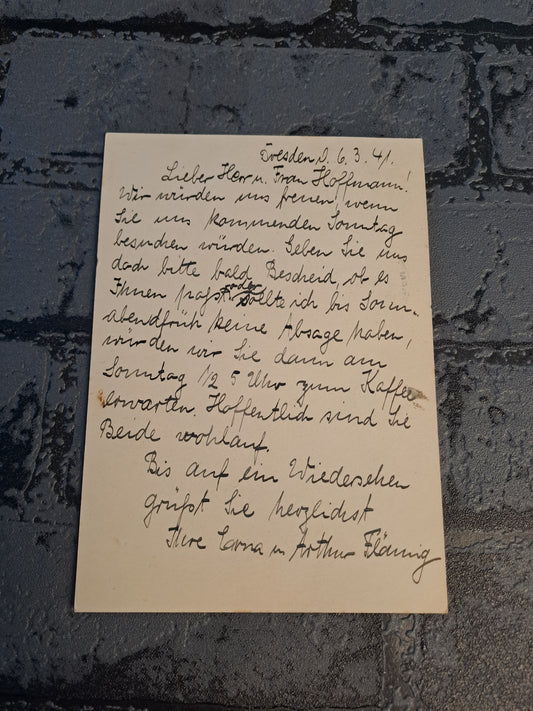 Dresden d. 6.3.41.
Lieber Herr u. Frau Hoffmann!
Wir würden uns freuen, wenn
Sie uns kommenden Sonntag
besuchen würden. Geben Sie uns
doch bitte bald Bescheid, ob es
Ihnen paßt oder sollte ich bis Sonn-
abendfrüh keine Absage haben,
würden wir Sie dann am
Sonntag 1/2 5 Uhr zum Kaffee
erwarten. Hoffentlich sind Sie
Beide wohlauf.
Bis auf ein Wiedersehen
grüßt Sie herzlichst
Ihre u Arthur